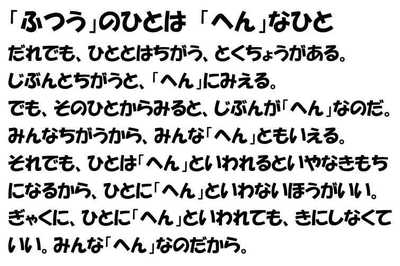 「ふつう」のひとは 「へん」なひと
だれでも、ひととはちがう、とくちょうがある。
じぶんとちがうと、「へん」にみえる。
でも、そのひとからみると、じぶんが「へん」なのだ。
みんなちがうから、みんな「へん」ともいえる。
それでも、ひとは「へん」といわれるといやなきもち
になるから、ひとに「へん」といわないほうがいい。
ぎゃくに、ひとに「へん」といわれても、きにしなくて
いい。みんな「へん」なのだから。